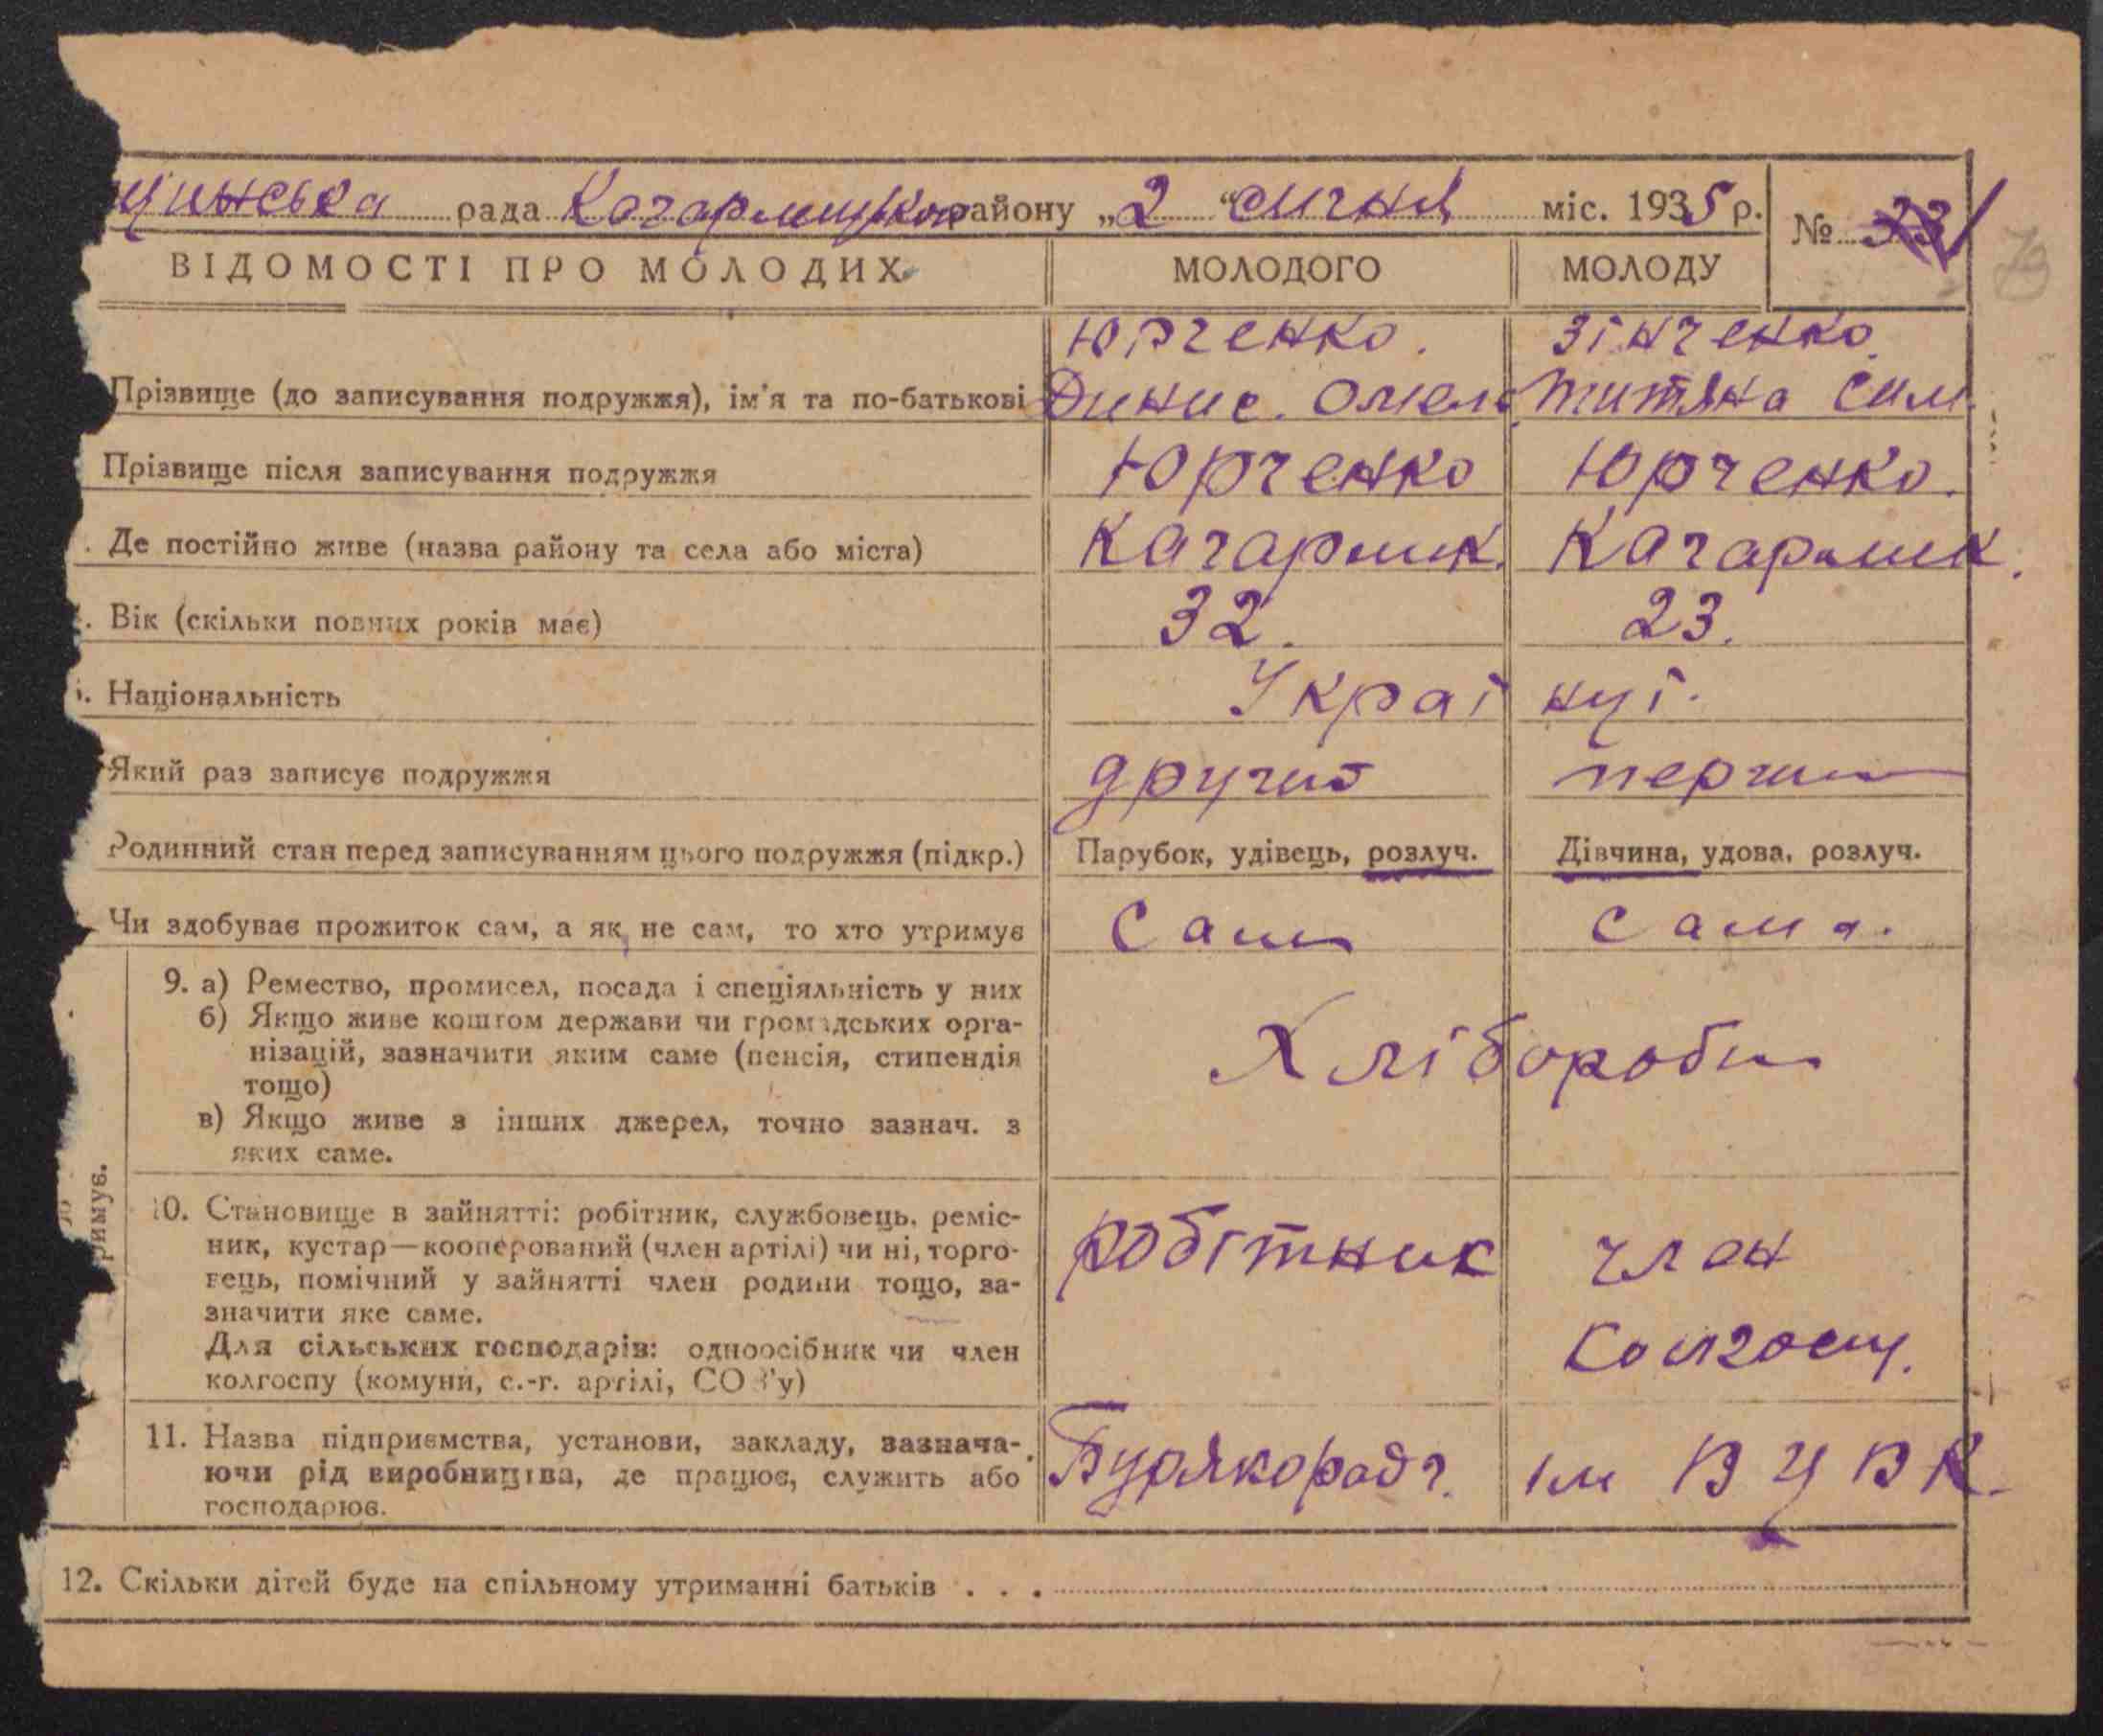 щинська рада Кагарлицького району „2“ січня міс. 1935 р. № 33
ВІДОМОСТІ ПРО МОЛОДИХ МОЛОДОГО МОЛОДУ
Юрченко. Зінченко.
Прізвище (до записування подружжя), ім'я та по-батькові Динис. Омел. Титяна Сим.
Прізвище після записування подружжя Юрченко Юрченко.
Де постійно живе (назва району та села або міста) Кагарлик. Кагарлик.
Вік (скільки повних років має) 32. 23.
Національність Украі нці.
Який раз записує подружжя другий перший
Родинний стан перед записуванням цього подружжя (підкр.) Парубок, удівець, розлуч. Дівчина, удова, розлуч.
Чи здобуває прожиток сам, а як не сам, то хто утримує Сам Сама.
9. а) Ремество, промисел, посада і спеціяльність у них
б) Якщо живе коштом держави чи громадських орга-
нізацій, зазначити яким саме (пенсія, стипендія
тощо)
Хлібороби
в) Якщо живе з інших джерел, точно зазнач. з
яких саме.
римує.
10. Становище в зайнятті: робітник, службовець, реміс-
ник, кустар—кооперований (член артілі) чи ні, торго-
вець, помічний у зайнятті член родини тощо, за-
значити яке саме.
Для сільських господарів: одноосібник чи член
колгоспу (комуни, с.-г. артілі, СОЗ'у)
робітник член
колгоспу.
11. Назва підприємства, установи, закладу, зазнача-
ючи рід виробництва, де працює, служить або
господарює.
Бурякорадг. ім ВЦВК.
12. Скільки дітей буде на спільному утриманні батьків . . .